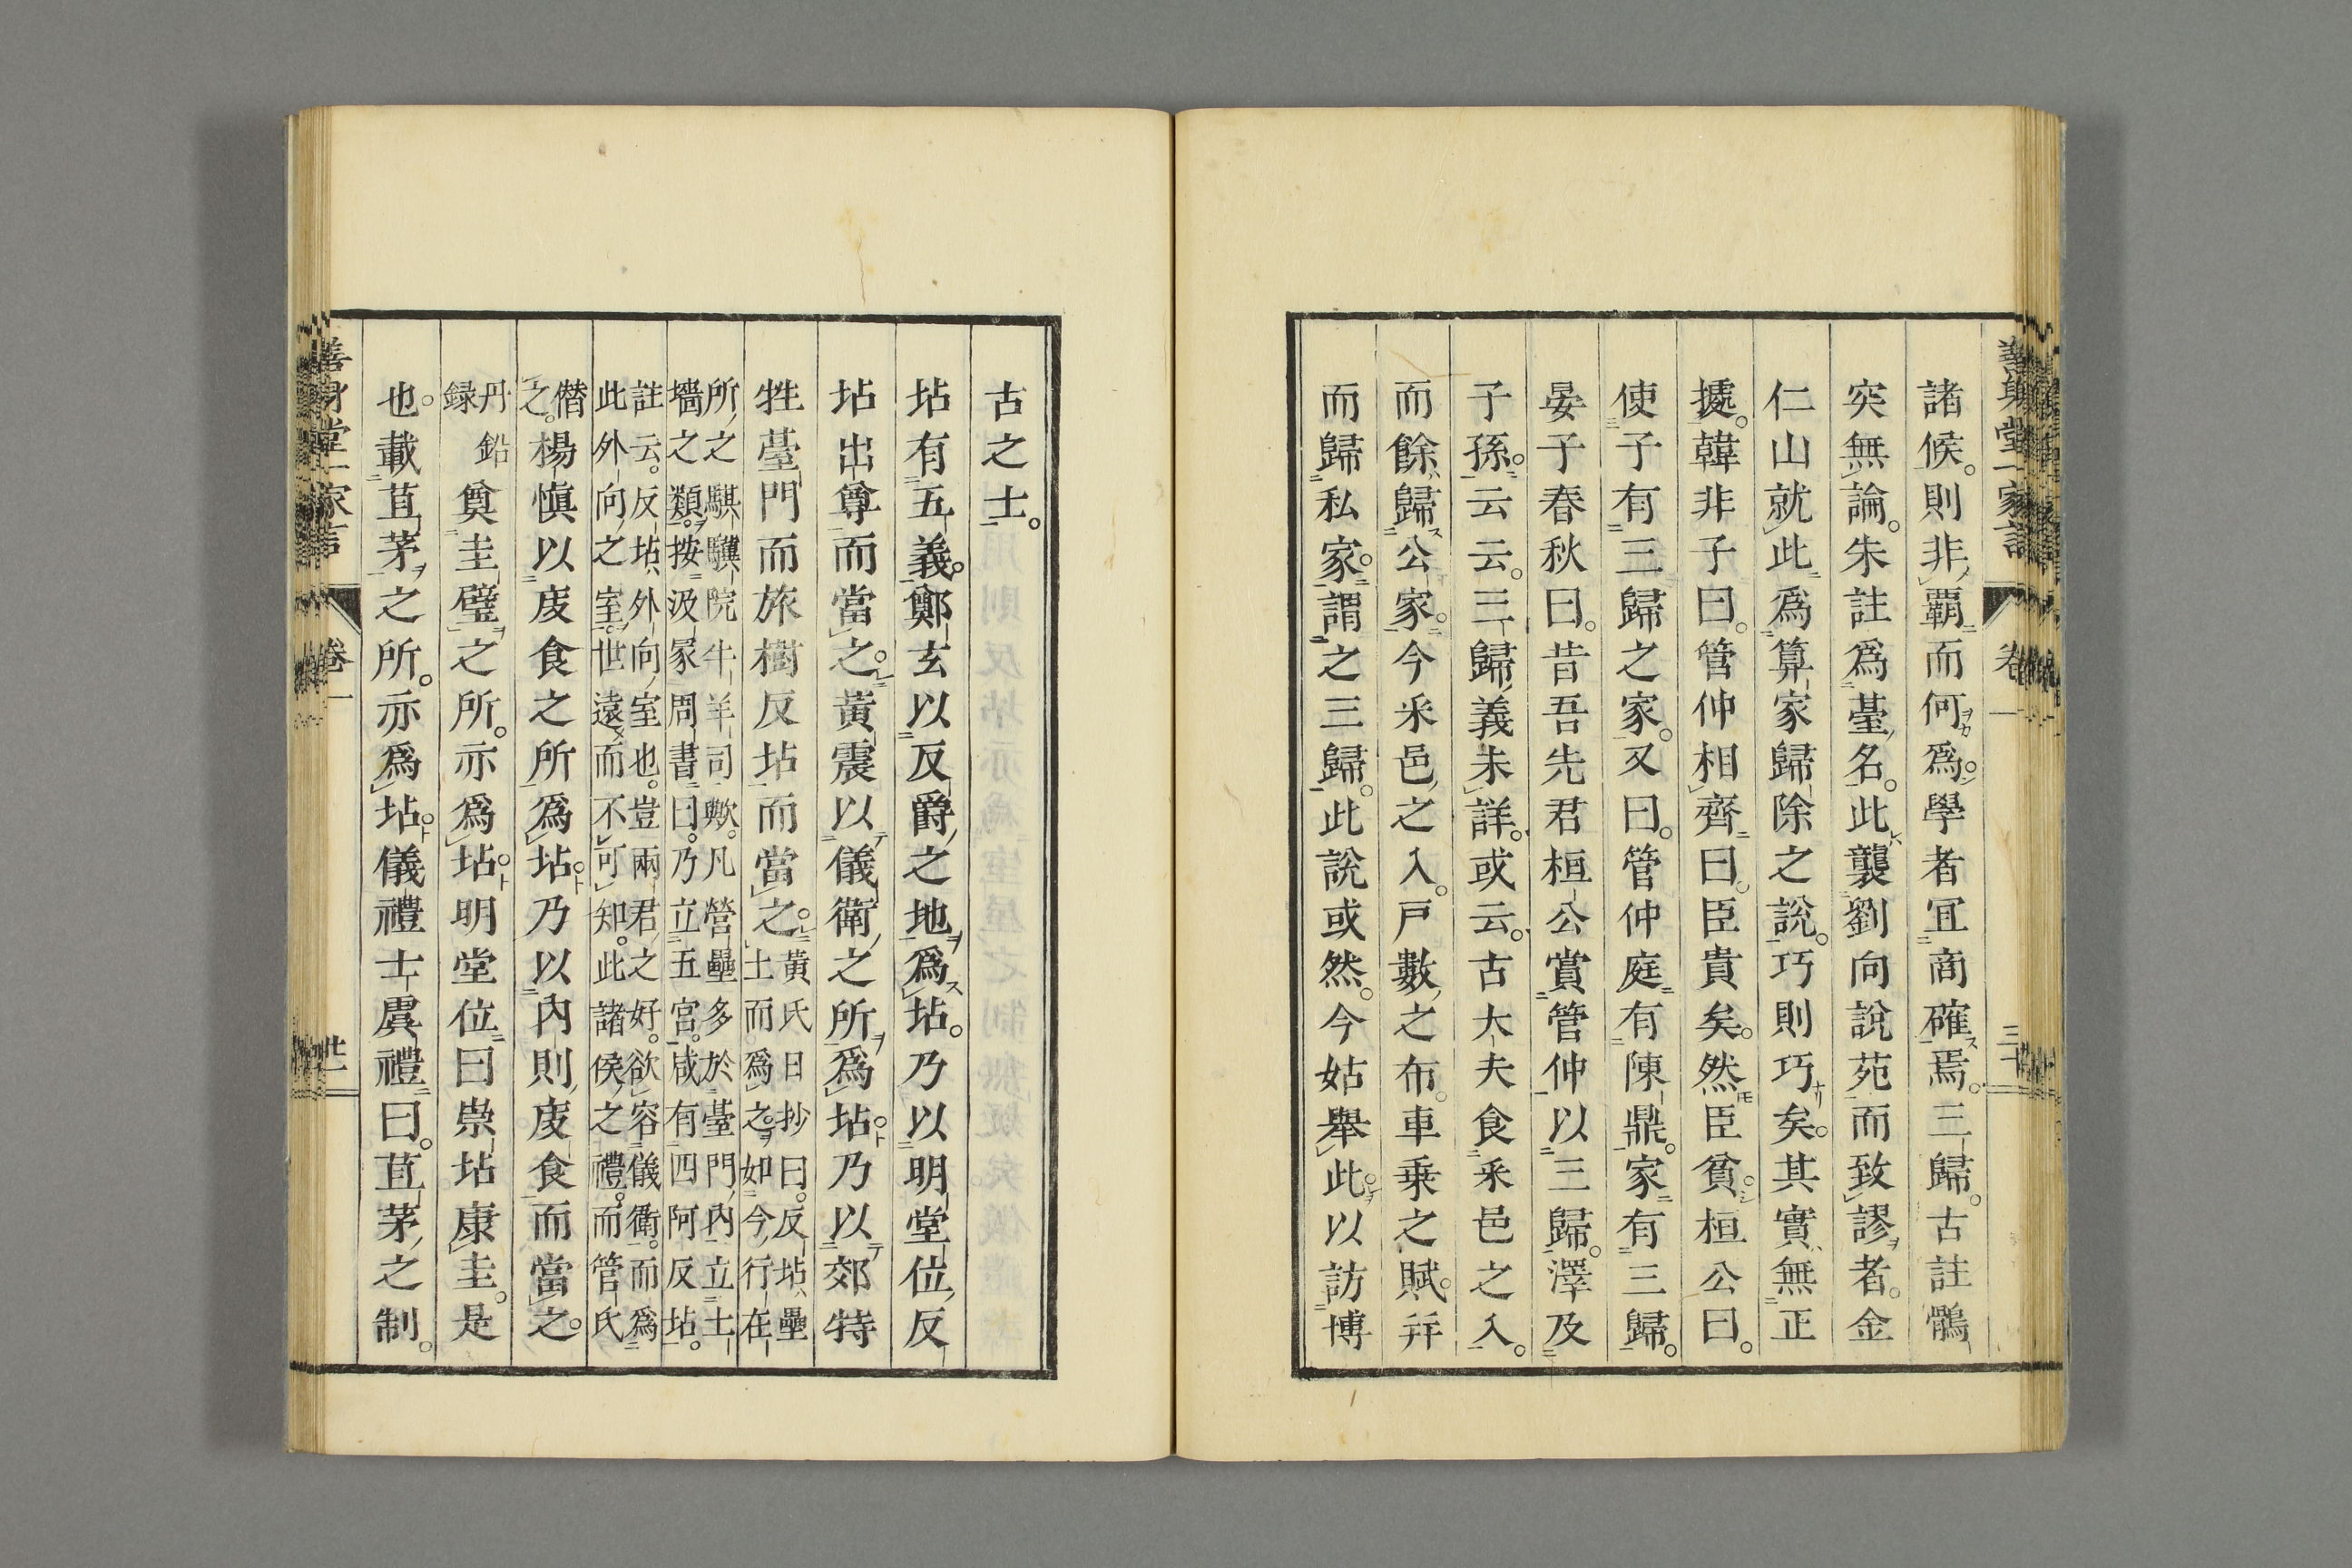 諸侯。則非覇而何爲。學者宜商確焉。三歸。古註鶻
突無論。朱註爲臺名。此襲劉向說苑而致謬者。金
仁山就此爲算家歸除之說。巧則巧矣。其實無正
據。韓非子曰。管仲相齊曰。臣貴矣。然臣貧。桓公曰。
使子有三歸之家。又曰。管仲庭有陳鼎。家有三歸。
晏子春秋曰。昔吾先君桓公賞管仲以三歸。澤及
子孫。云云。三歸義未詳。或云。古大夫食釆邑之入。
而餘歸公家。今釆邑之入。戸數之布。車乗之賦。幷
而歸私家。謂之三歸。此說或然。今姑舉此。以訪博
古之士。
坫有五義。鄭玄以反爵之地爲坫。乃以明堂位反
坫出尊而當之。黃震以儀衛之所爲坫。乃以郊特
牲臺門而旅樹反坫而當之。黃氏日抄曰。反坫壘
土而爲之。如今行在
所之騏驥院牛羊司歟。凡營壘多於臺門内立土
墻之類。按汲冢周書曰。乃立五宮。咸有四阿反坫。
註云。反坫外向室也。豈兩君之好。欲容儀衛。而爲
此外向之室。世遠而不可知。此諸侯之禮。而管氏
僣
之。楊愼以庋食之所爲坫。乃以內則庋食而當之。
丹鉛
録奠圭璧之所。亦爲坫。明堂位曰崇坫康圭。是
也。載苴茅之所。亦爲坫。儀禮士虞禮曰。苴茅之制。
卷一